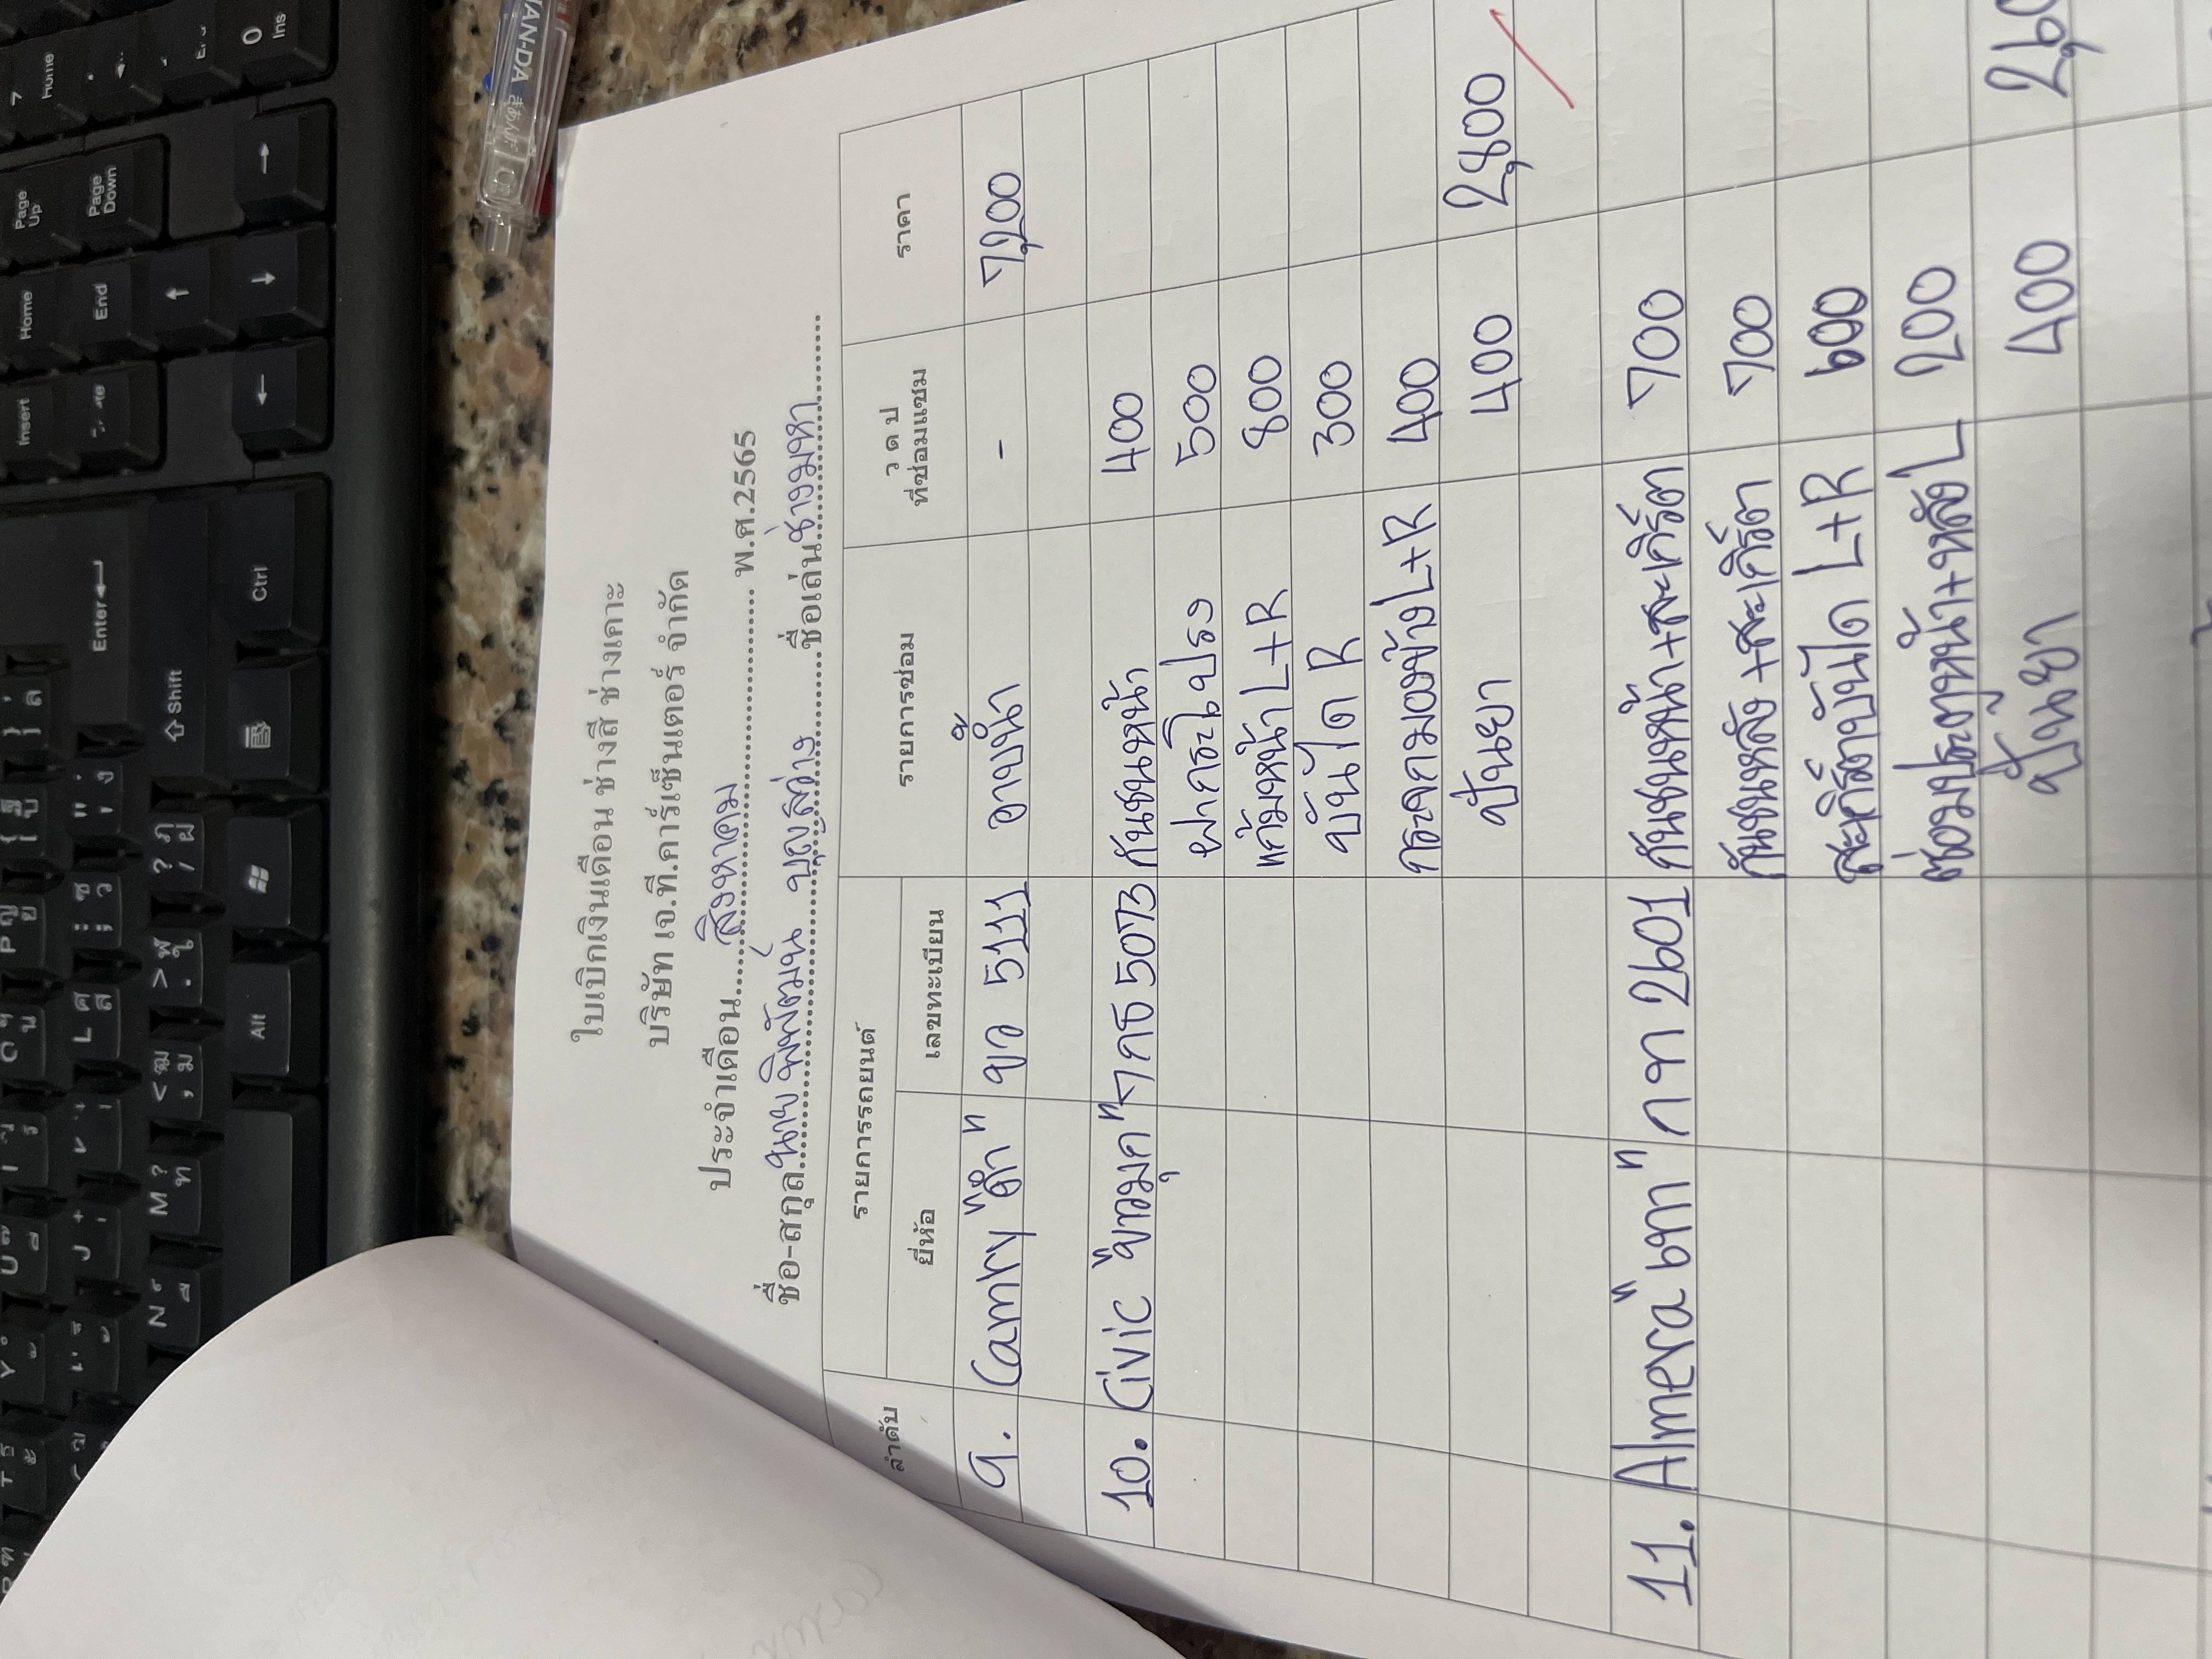 ใบเบิกเงินเดือน ช่างสี ช่างเคาะ
บริษัท เจ.ที.คาร์เซ็นเตอร์ จำกัด
ประจำเดือน สิงหาคม พ.ศ.2565
ชื่อ-สกุล นาย พิพัฒน์ บุญสว่าง ชื่อเล่น ช่างมหา
ลำดับ รายการรถยนต์ รายการซ่อม ว ด ป ราคา
ยี่ห้อ เลขทะเบียน ที่ซ่อมแซม
9. Camry "ดำ" ขว 5111 อาบน้ำ - 7,200
10. Civic "ขาวมุก" 7กธ 5073 กันชนหน้า 400
ฝากระโปรง 500
แก้มหน้า L+R 800
บันได R 300
กระจกมองข้าง L+R 400
ปั่นยา 400 2,800
11. Almera "เทา" กท 2601 กันชนหน้า+สะเกิร์ต 700
กันชนหลัง+สะเกิร์ตา 700
สะเกิร์ตาบันได L+R 600
ซ่อมประตูหน้า+หลัง L 200
ปั้นยา 400
Insert
Home
Page Up
End
Page Down
Enter
Shift
Ctrl
Alt
0 Ins